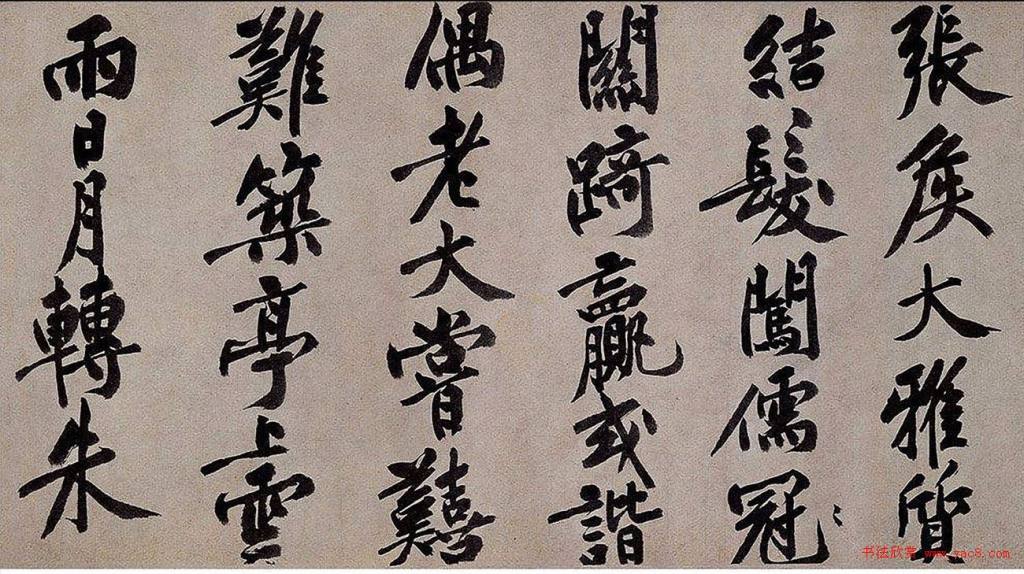 張侯大雅質
結髮闖儒冠
關踦贏或諧
偶老大嘗囏
難築亭上雲
雨日月轉朱
书法欣赏 www.yac8.com